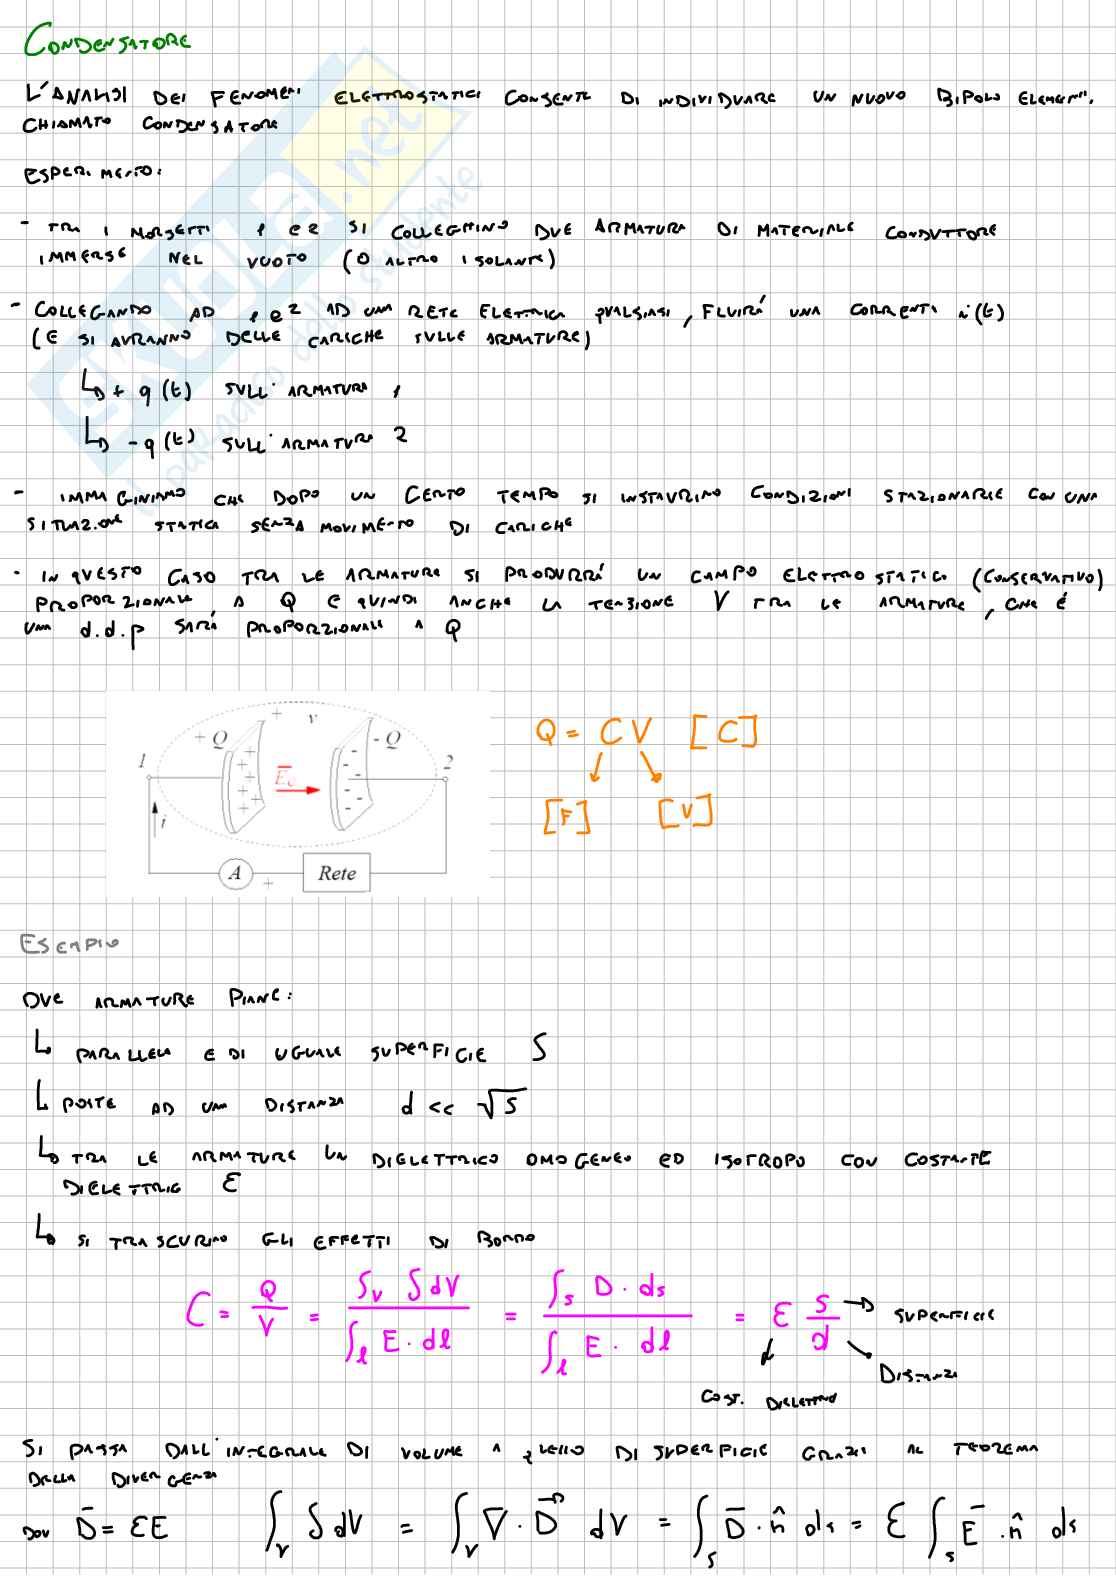 CONDENSATORE
L'ANALISI DEI FENOMENI ELETTROSTATICI CONSENTE DI INDIVIDUARE UN NUOVO BIPOLO ELEMENT.
CHIAMATO CONDENSATORE
ESPERIMENTO:
- TRA I MORSETTI 1 E 2 SI COLLEGHINO DUE ARMATURA DI MATERIALE CONDUTTORE
IMMERSE NEL VUOTO (O ALTRO ISOLANTE)
- COLLEGANDO AD 1 E 2 AD UNA RETE ELETTRICA QUALSIASI, FLUIRÁ UNA CORRENTE i(t)
(E SI AVRANNO DELLE CARICHE SULLE ARMATURE)
↳ + q(t) SULL'ARMATURA 1
↳ - q(t) SULL'ARMATURA 2
- IMMAGINIAMO CHE DOPO UN CERTO TEMPO SI INSTAURINO CONDIZIONI STAZIONARIE CON UNA
SITUAZIONE STATICA SENZA MOVIMENTO DI CARICHE
- IN QUESTO CASO TRA LE ARMATURE SI PRODURRÁ UN CAMPO ELETTROSTATICO (CONSERVATIVO)
PROPORZIONALE A Q E QUINDI ANCHE LA TENSIONE V TRA LE ARMATURE, CHE É
UNA d.d.p SARÁ PROPORZIONALE A Q
+ v
+ Q - Q
1 2
E
i
A + Rete
Q = CV [C]
[F] [V]
ESEMPIO
DUE ARMATURE PIANE:
↳ PARALLELE E DI UGUALE SUPERFICIE S
↳ POSTE AD UNA DISTANZA d << √S
↳ TRA LE ARMATURE UN DIELETTRICO OMOGENEO ED ISOTROPO CON COSTANTE
DIELETTRICA ε
↳ SI TRASCURINO GLI EFFETTI DI BORDO
C = Q/V = ∫v δ dV / ∫l E · dl = ∫s D · ds / ∫l E · dl = ε S/d → SUPERFICIE
DISTANZA
COST. DIELETTRICA
SI PASSA DALL'INTEGRALE DI VOLUME A QUELLO DI SUPERFICIE GRAZIE AL TEOREMA
DELLA DIVERGENZA
DOV D̄ = εE ∫v δ dV = ∫v ∇ · D⃗ dV = ∫s D̄ · n̂ ds = ε ∫s Ē · n̂ ds